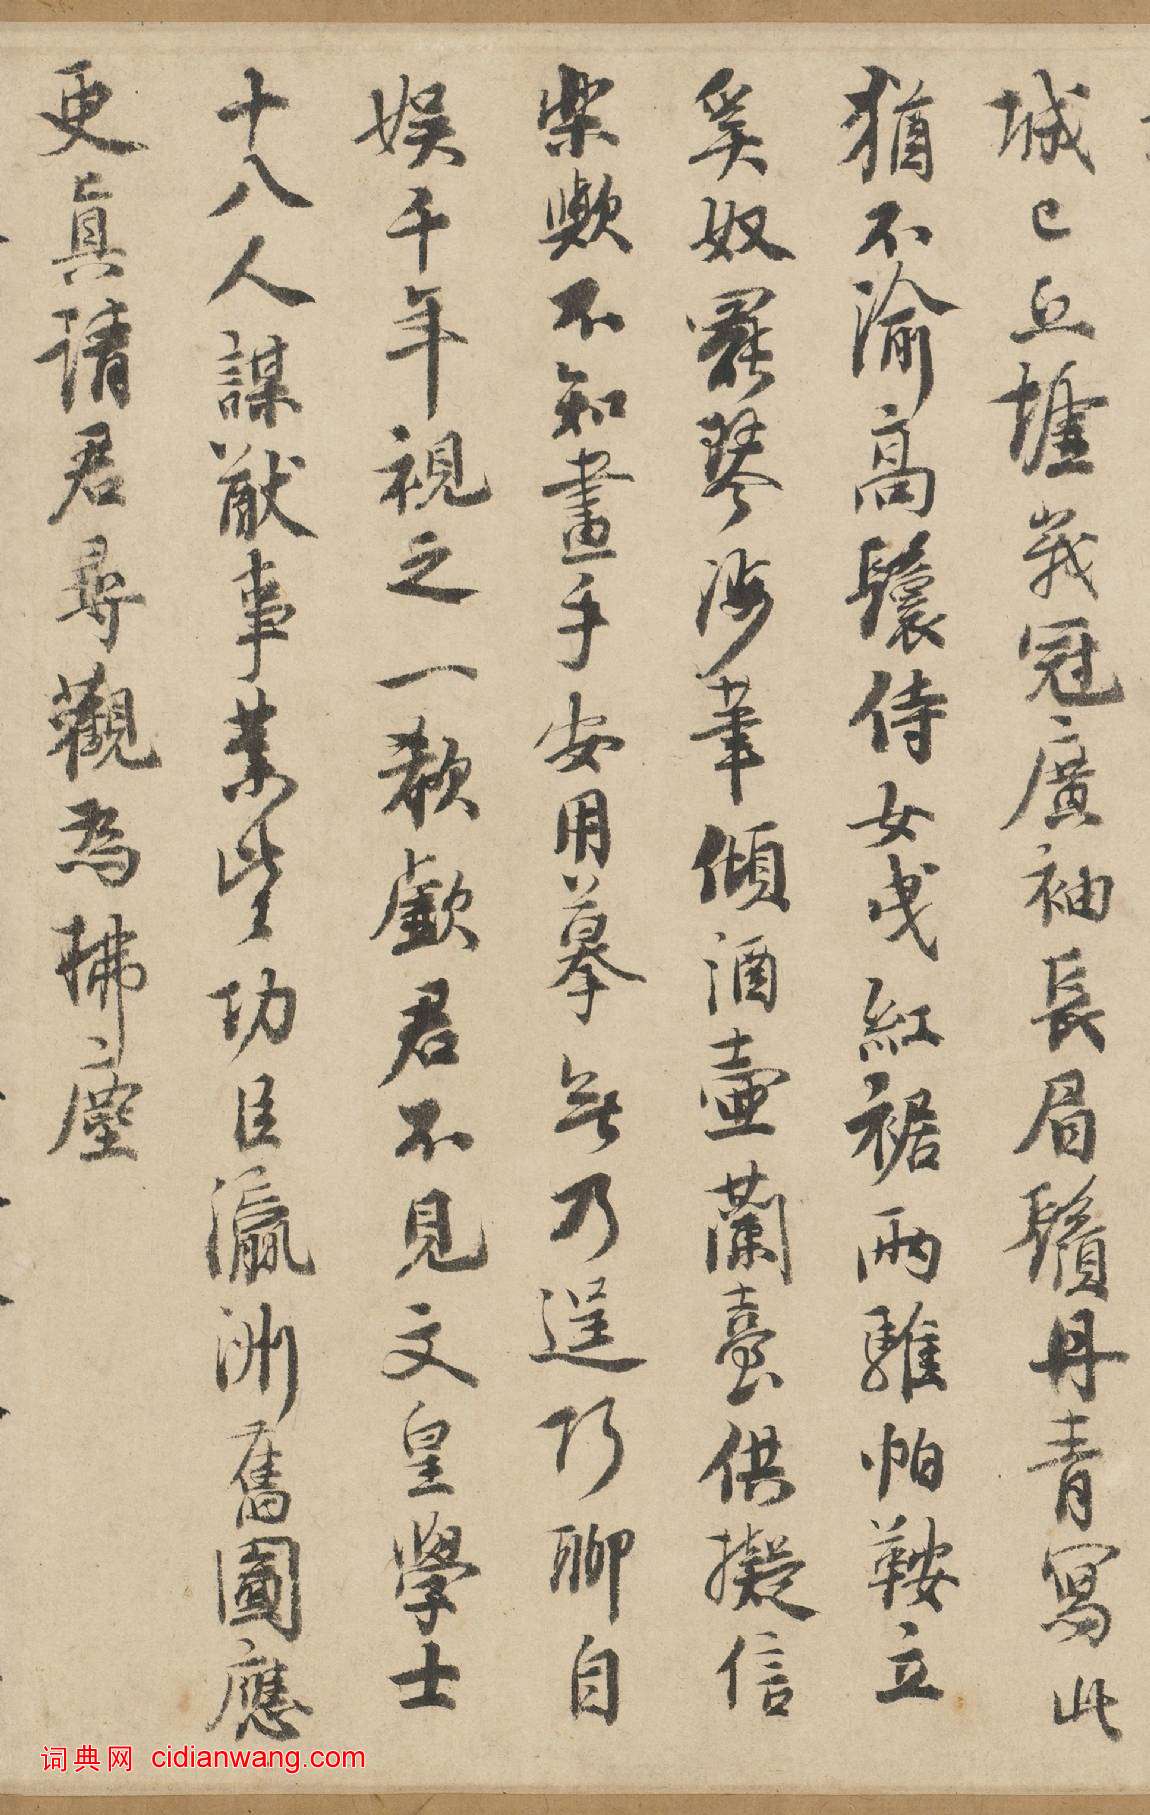 城已丘墟峩冠廣袖長眉鬚丹青寫此
猶不渝高鬟侍女曳紅裾兩騅帕鞍立
奚奴罷琴涉筆傾酒壺蘭臺供擬信
柴歟不知畫手安用摹無乃逞巧聊自
娛千年視之一欷歔君不見文皇學士
十八人謀猷事業皆功臣瀛洲舊圖應
更真請君尋觀為拂塵
词典网 cidianwang.com